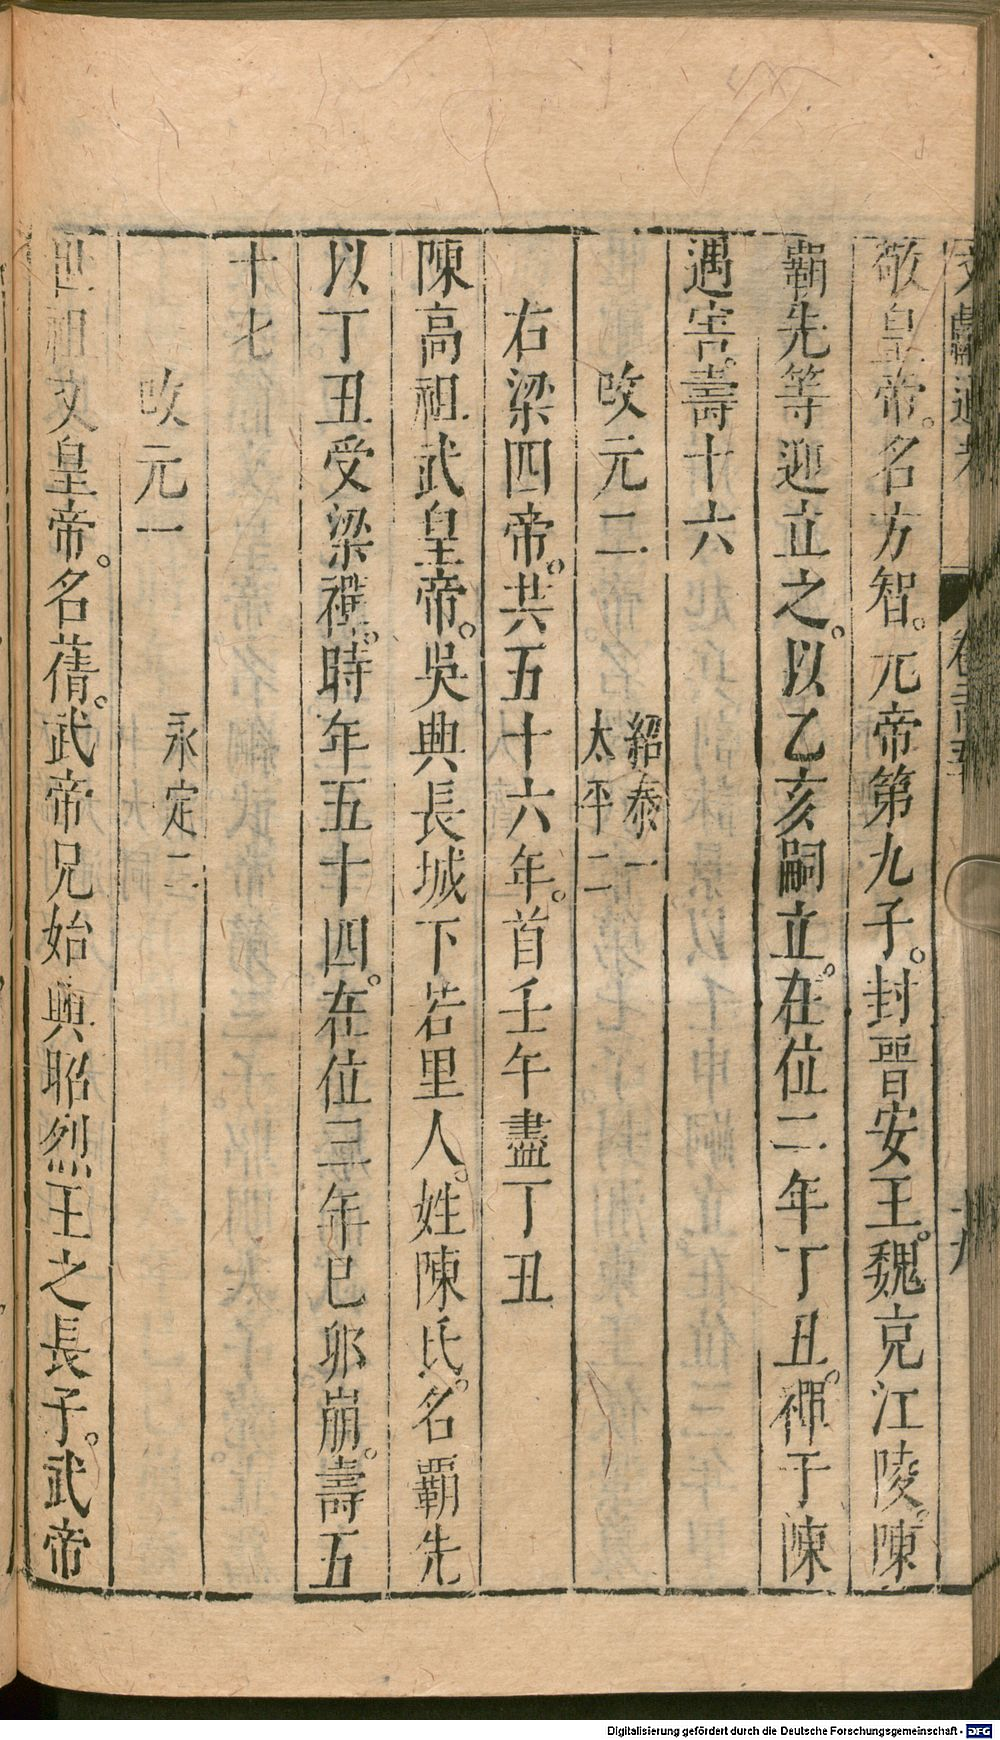 文獻通考 卷二百五十 十九
敬皇帝。名方智。元帝第九子。封晉安王。魏克江陵。陳
霸先等迎立之。以乙亥嗣立。在位二年丁丑。禪于陳
遇害。壽十六
攺元二 紹泰一 太平二
右梁四帝。共五十六年。首壬午盡丁丑
陳高祖武皇帝。吳興長城下若里人。姓陳氏。名霸先
以丁丑受梁禪。時年五十四。在位三年巳卯崩。壽五
十七
攺元一 永定三
世祖文皇帝。名蒨。武帝兄始興昭烈王之長子。武帝
Digitalisierung gefördert durch die Deutsche Forschungsgemeinschaft - DFG